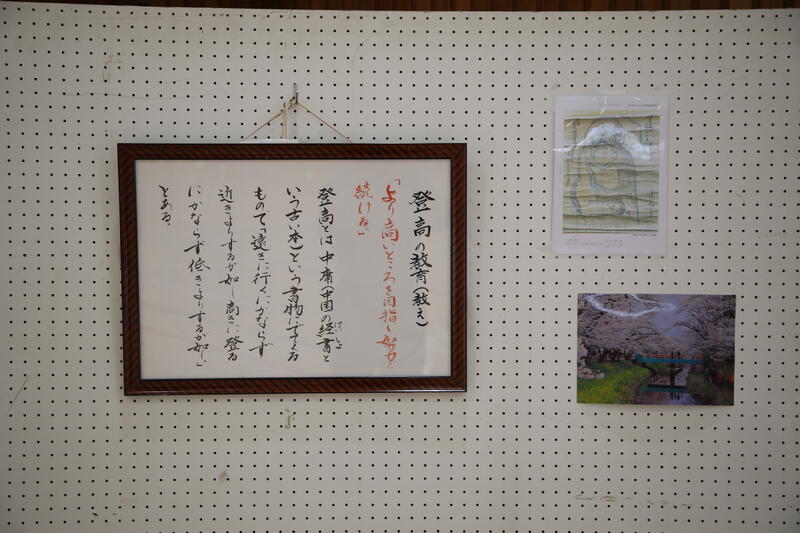 登高の教育(教え)
「より高いところを目指し努力し
続ける」
登高とは中庸(中国の経書と
けいしょ
いう古い本)という書物にでてくる
もので「遠きに行くにかならず
近きよりするが如し高きに登る
にかならず低きよりするが如し」
とある。